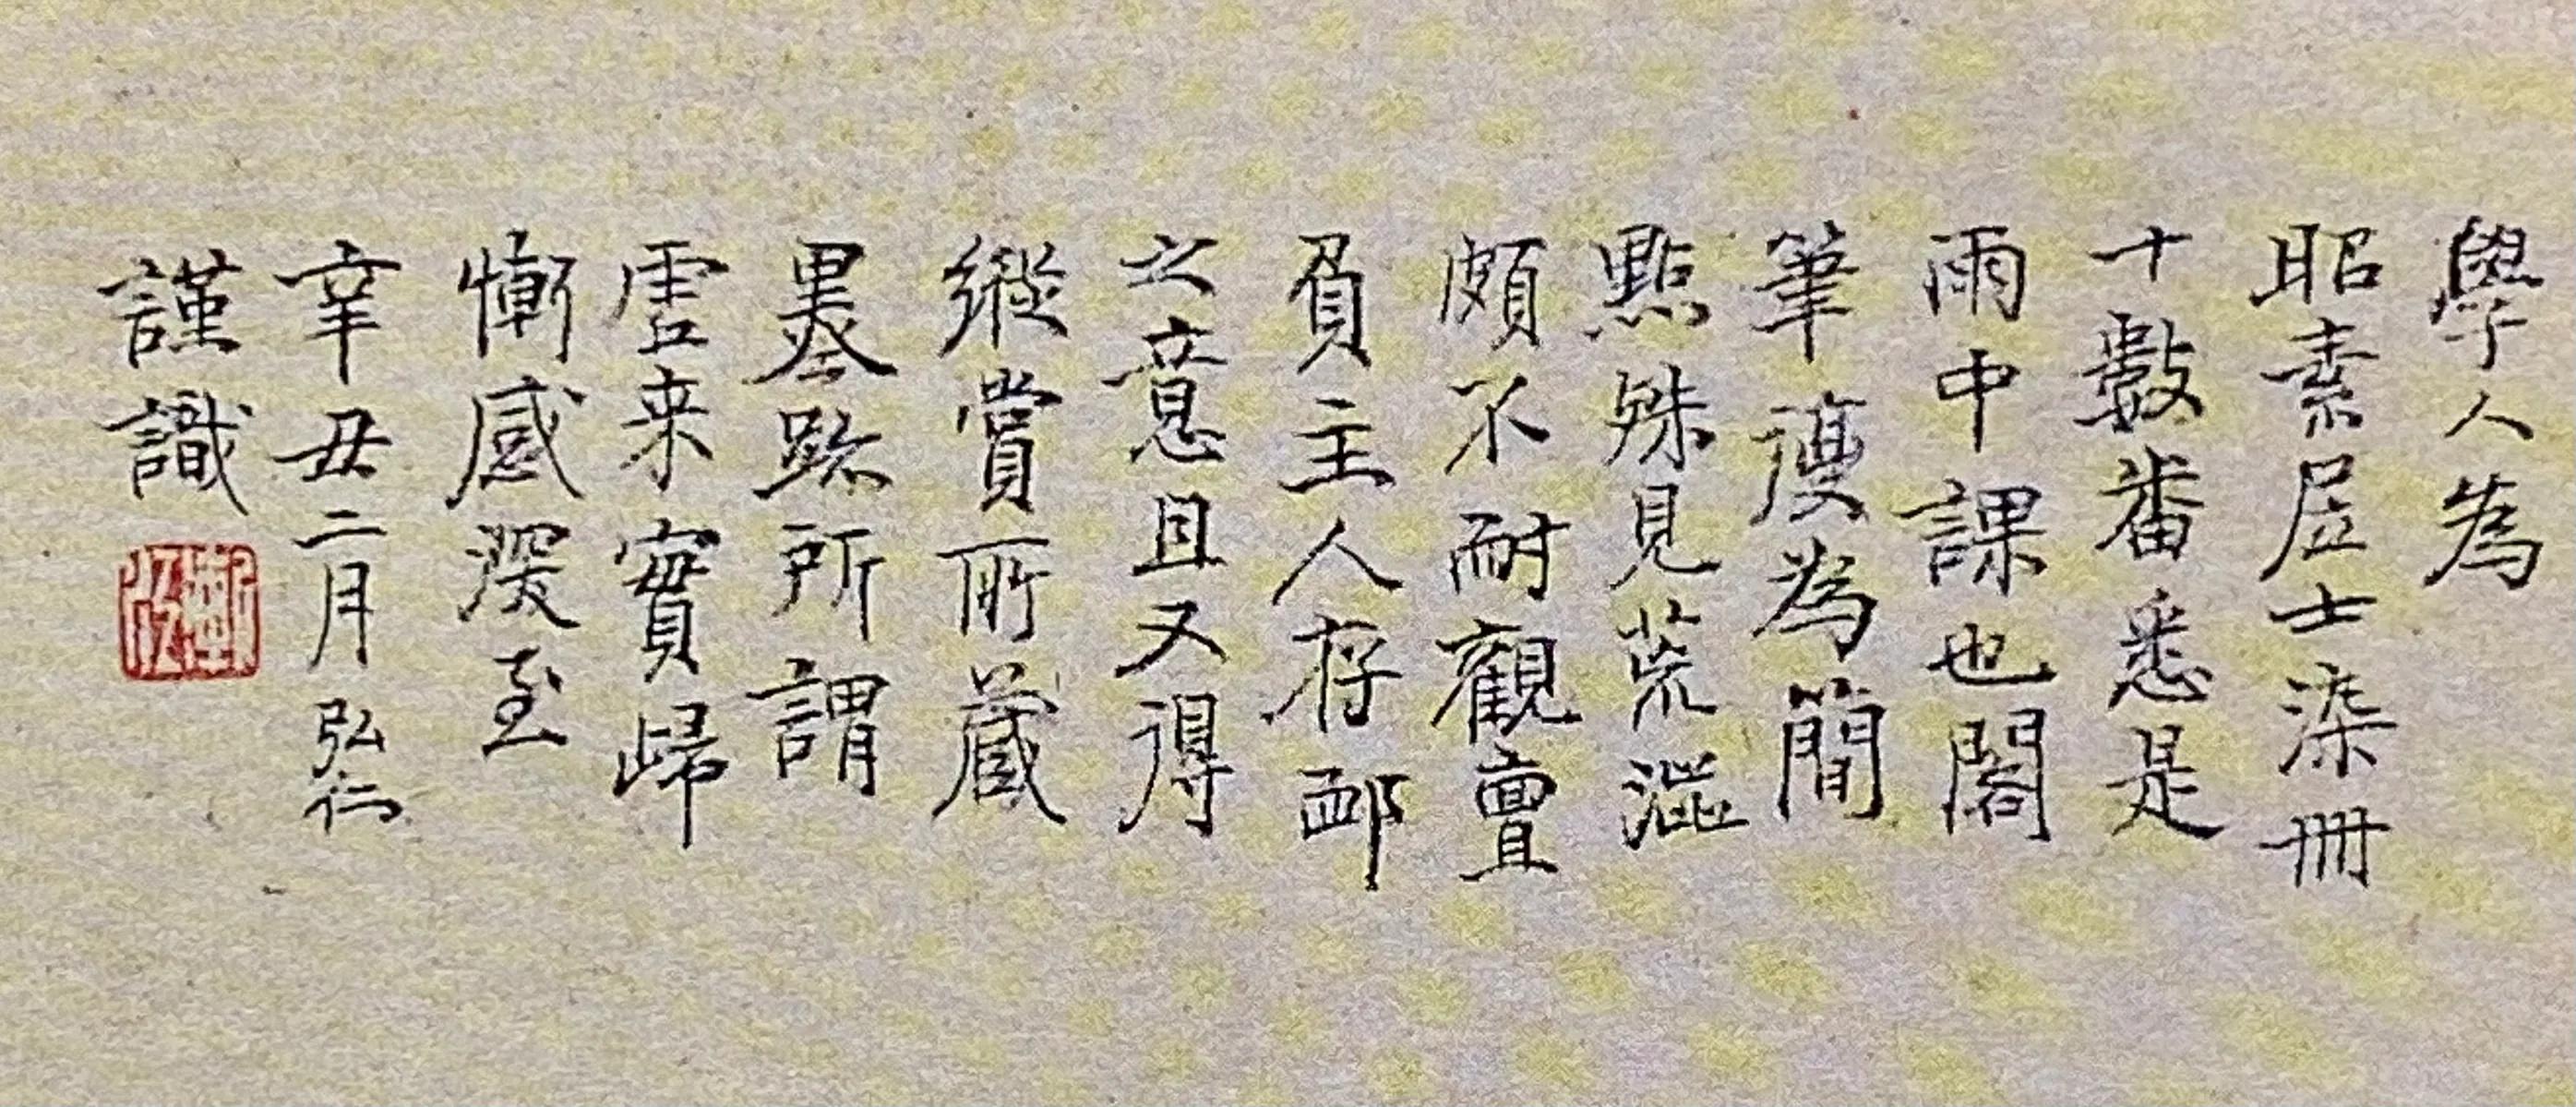 學人為
昭素居士染冊
十數番悉是
雨中課也閣
筆復為簡
點殊見荒澁
頗不耐觀亶
負主人存卹
之意且又得
縱賞所藏
墨跡所謂
虛来實歸
慚感深至
辛丑二月弘仁
謹識